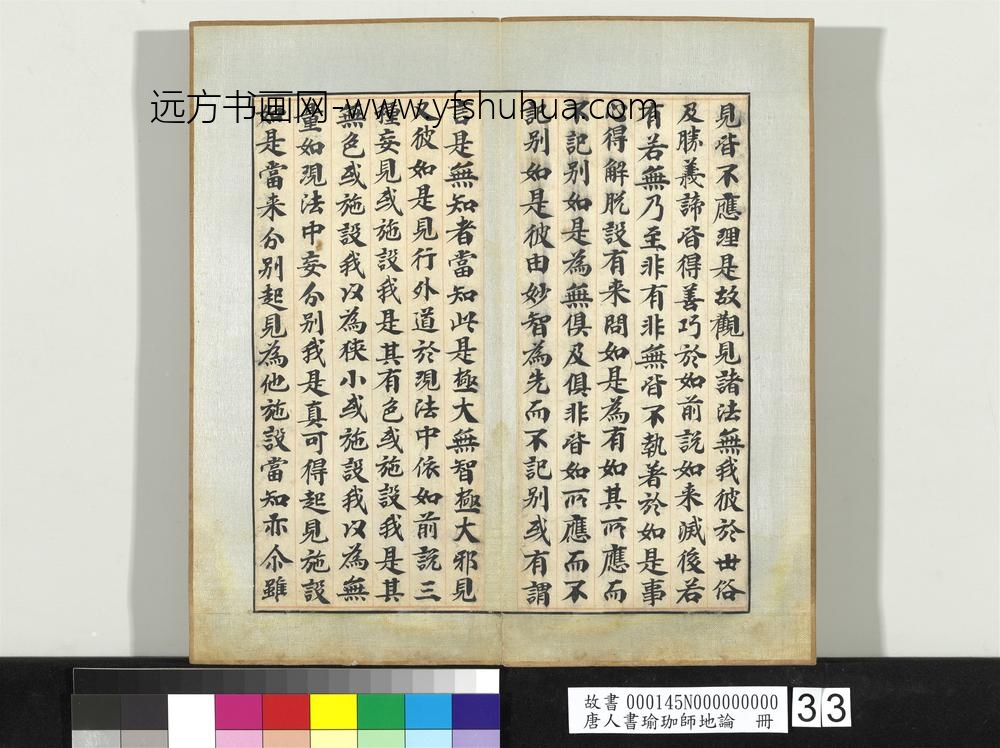 远方书画网-www.yfshuhua.com
見皆不應理是故觀見諸法無我彼於世俗
及勝義諦皆得善巧於如前說如来滅後若
有若無乃至非有非無皆不執著於如是事
得解脫設有来問如是為有如其所應而
不記别如是為無俱及俱非皆如所應而不
記别如是彼由妙智為先而不記别或有謂
是無知者當知此是極大無智極大邪見
又彼如是見行外道於現法中依如前說三
種妄見或施設我是其有色或施設我是其
無色或施設我以為狹小或施設我以為無
量如現法中妄分别我是真可得起見施設
如是當来分别起見為他施設當知亦尒雖
故書 000145N000000000
唐人書瑜珈師地論 冊
33